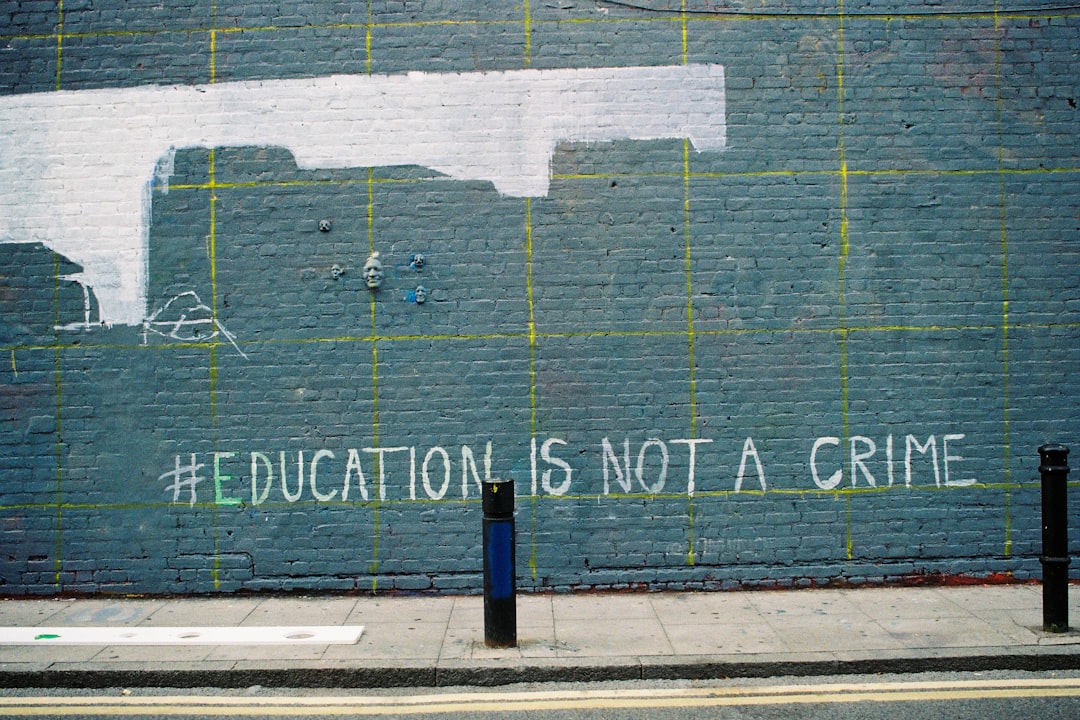 #EDUCATION IS NOT A CRIME